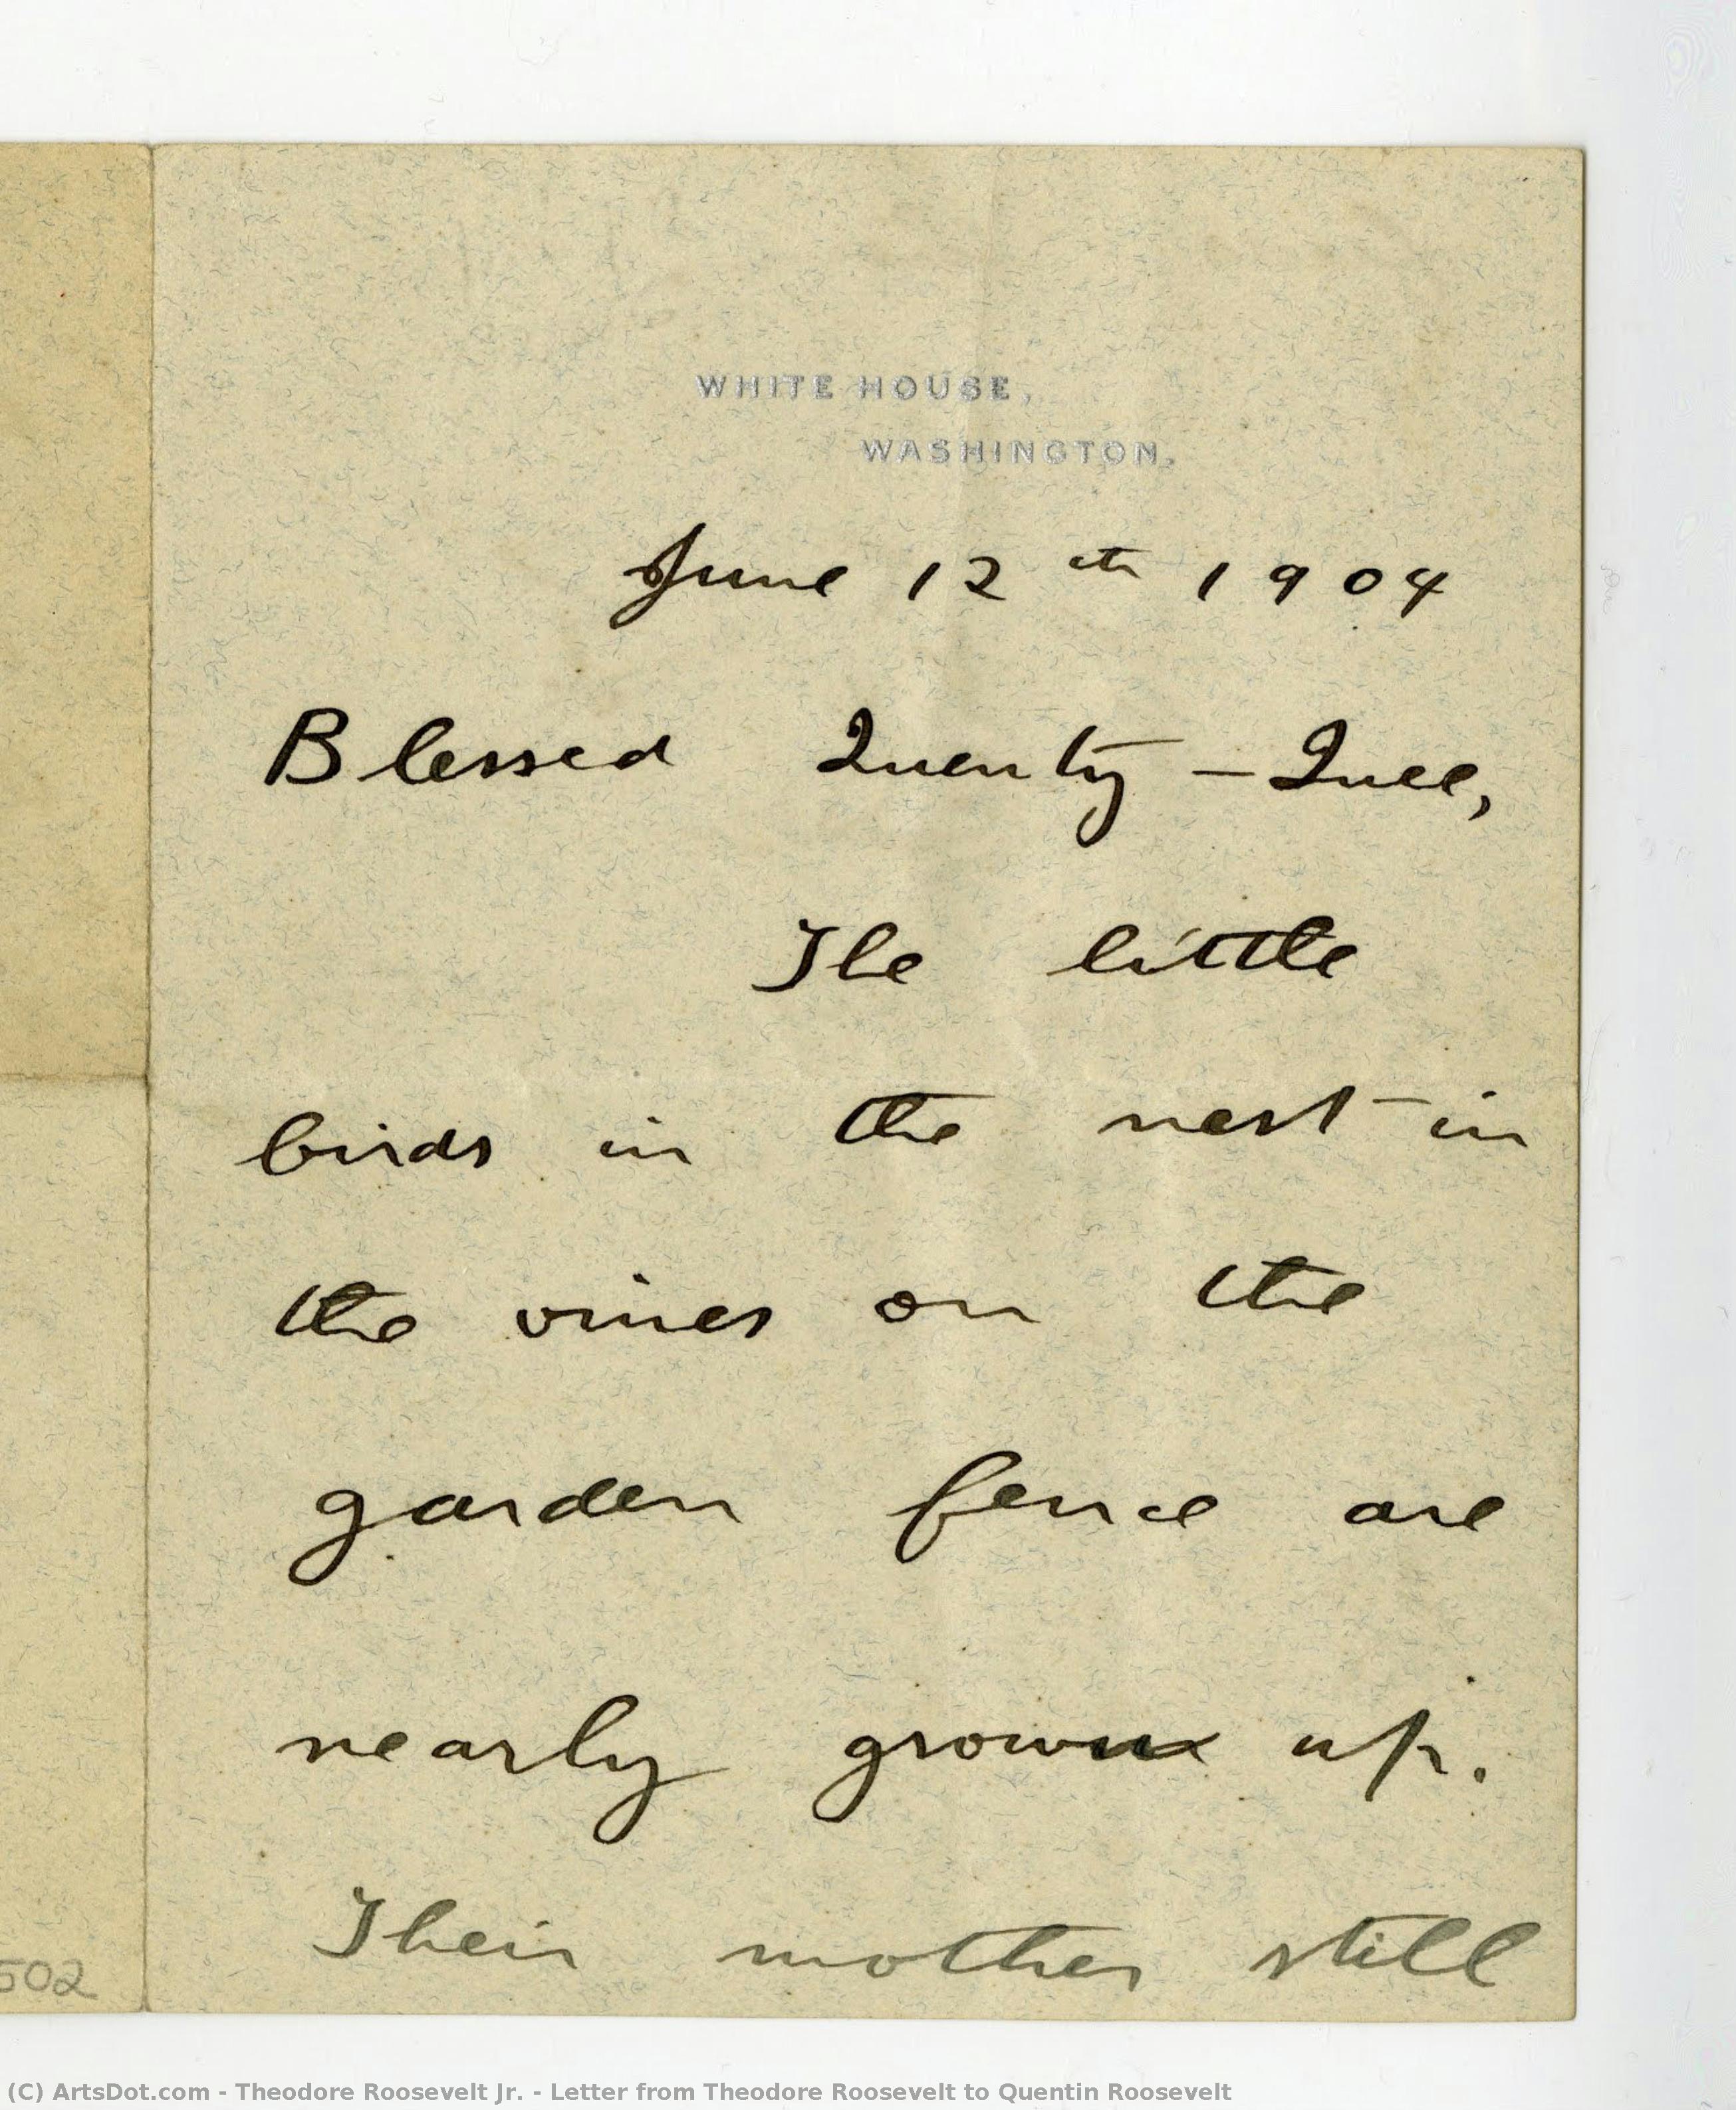 WHITE HOUSE,
WASHINGTON.
June 12th 1904
Blessed Quenty-Quee,
The little
birds in the nest in
the vines on the
garden fence are
nearly grown up.
Their mother still
502
(C) ArtsDot.com - Theodore Roosevelt Jr. - Letter from Theodore Roosevelt to Quentin Roosevelt